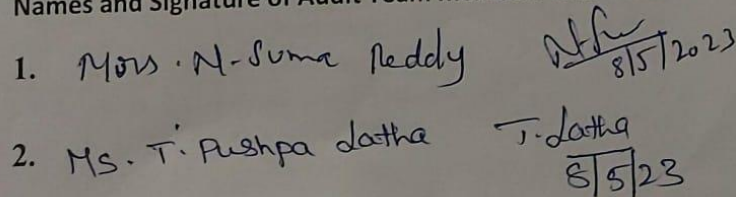 Names and Signature of Audit Team
1. Mrs. N-Suma Reddy 8/5/2023
2. Ms. T. Pushpa latha T. latha
8/5/23